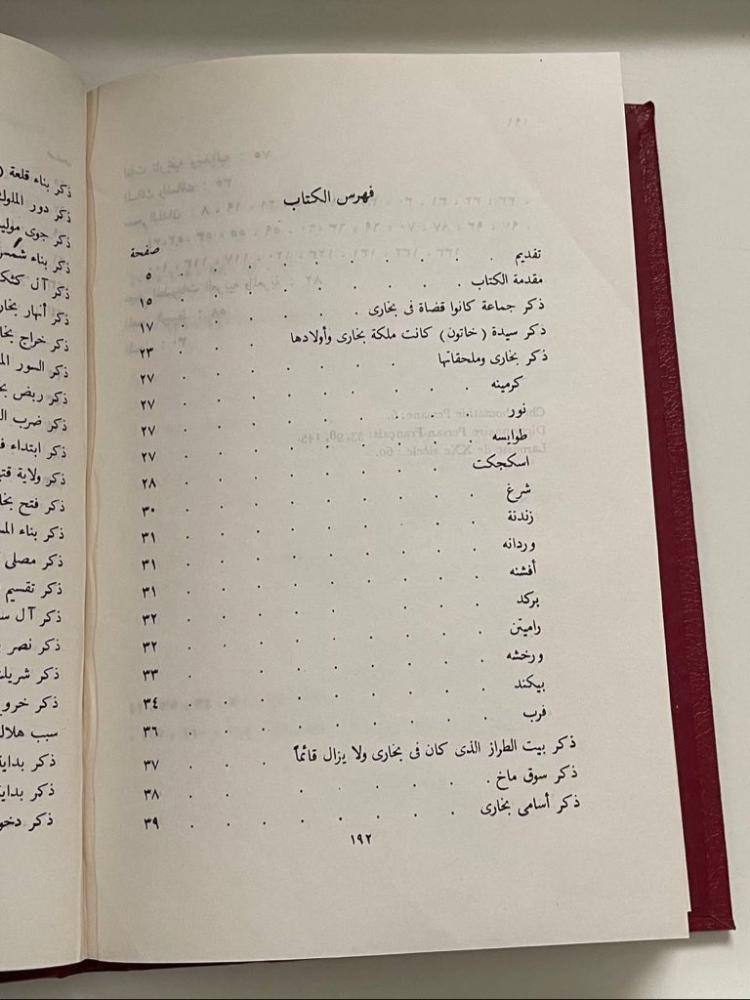 فهرس الكتاب
صفحة
تقديم . . . . . . . . ٥
مقدمة الكتاب . . . . . . . . ١٥
ذكر جماعة كانوا قضاة فى بخارى . . . . . ١٧
ذكر سيدة (خاتون) كانت ملكة بخارى وأولادها . . . ٢٣
ذكر بخارى وملحقاتها . . . . . . ٢٧
كرمينه . . . . . . . . ٢٧
نور . . . . . . . . ٢٧
طوايسه . . . . . . . . ٢٧
اسكجكت . . . . . . . . ٢٨
شرغ . . . . . . . . ٣٠
زندنة . . . . . . . . ٣١
وردانه . . . . . . . . ٣١
أفشنه . . . . . . . . ٣١
بركد . . . . . . . . ٣٢
راميتن . . . . . . . . ٣٢
ورخشه . . . . . . . . ٣٣
بيكند . . . . . . . . ٣٤
فرب . . . . . . . . ٣٦
ذكر بيت الطراز الذى كان فى بخارى ولا يزال قائماً . . . ٣٧
ذكر سوق ماخ . . . . . . . ٣٨
ذكر أسامى بخارى . . . . . . . ٣٩
١٩٢
ذكر بناء قلعة
ذكر دور الملوك
ذكر جوى
ذكر بناء
ذكر آل
ذكر أنهار
ذكر خراج
ذكر السور
ذكر ربض
ذكر ضرب
ذكر ابتداء
ذكر ولاية
ذكر فتح
ذكر بناء
ذكر مصلى
ذكر تقسيم
ذكر آل
ذكر نصر
ذكر
ذكر
سبب
ذكر بداية
ذكر
ذكر